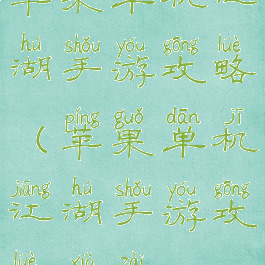 hú shǒu yóu gōng lüè
湖手游攻略
píng guǒ dān jī
（苹果单机
jiāng hú shǒu yóu gōng
江湖手游攻
lüè xià zài